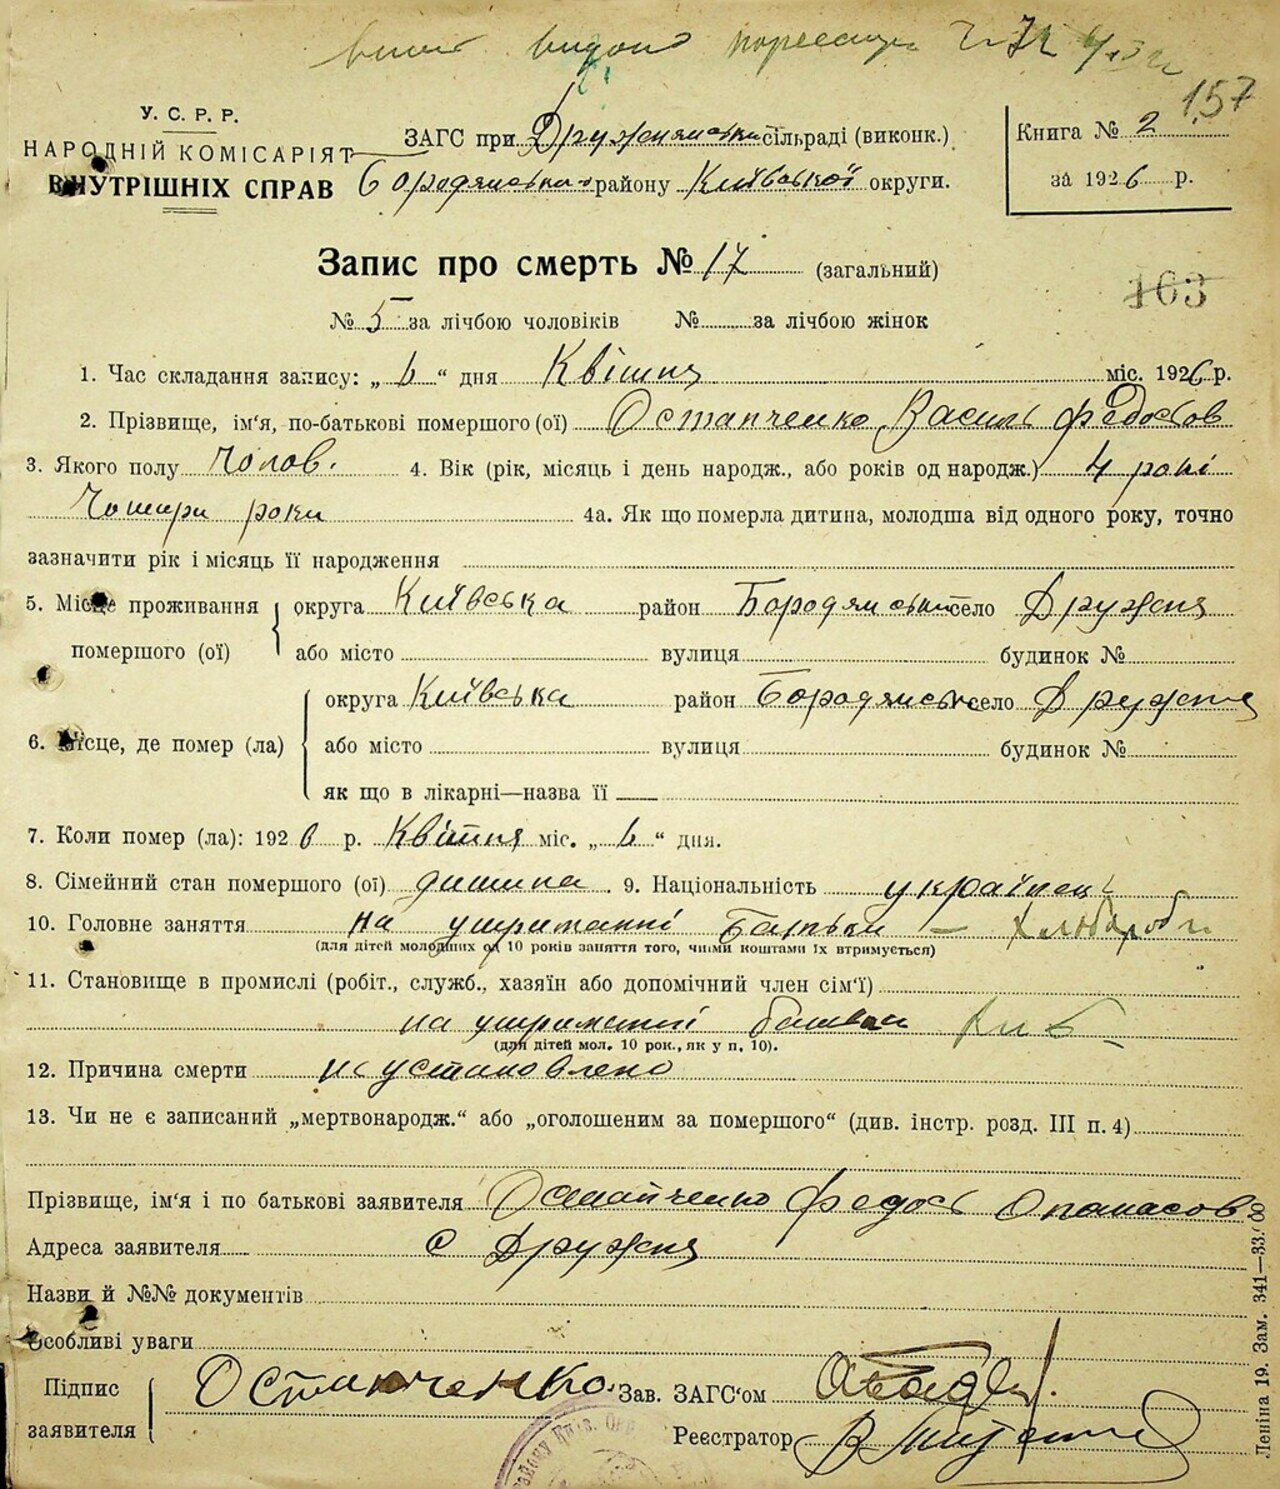 157
У. С. Р. Р.
НАРОДНІЙ КОМІСАРІЯТ
ВНУТРІШНІХ СПРАВ
ЗАГС при Дружнянські сільраді (виконк.)
Бородянського району Київської округи.
Книга № 2
за 1926 р.
Запис про смерть № 17 (загальний)
163
№ 5 за лічбою чоловіків № за лічбою жінок
1. Час складання запису: „ 6 “ дня Квітня міс. 1926 р.
2. Прізвище, ім'я, по-батькові помершого (ої) Остапченко Василь Федосьов
3. Якого полу Чолов. 4. Вік (рік, місяць і день народж., або років од народж.) 4 рокі
Чотири роки 4а. Як що померла дитина, молодша від одного року, точно
зазначити рік і місяць її народження
5. Місце проживання помершого (ої) округа Київська район Бородянськ село Дружня
або місто вулиця будинок №
6. Місце, де помер (ла) округа Київська район Бородянськ село Дружня
або місто вулиця будинок №
як що в лікарні—назва її
7. Коли помер (ла): 1926 р. Квітня міс. „ 6 “ дня.
8. Сімейний стан помершого (ої) дитина . 9. Національність українець
10. Головне заняття на утриманні Батьки — хлібороби
(для дітей молодших од 10 років заняття того, чиїми коштами їх втримується)
11. Становище в промислі (робіт., служб., хазяїн або допомічний член сім'ї)
на утриманні батьки
(для дітей мол. 10 рок., як у п. 10).
12. Причина смерти не установлено
13. Чи не є записаний „мертвонародж.“ або „оголошеним за помершого“ (див. інстр. розд. III п. 4)
Прізвище, ім'я і по батькові заявителя Остапченко Федось Опанасов
Адреса заявителя с Дружня
Назви й №№ документів
Особливі уваги
Підпис заявителя Остапченко. Зав. ЗАГС'ом
Реєстратор
Леніна 19. Зам. 341—33.